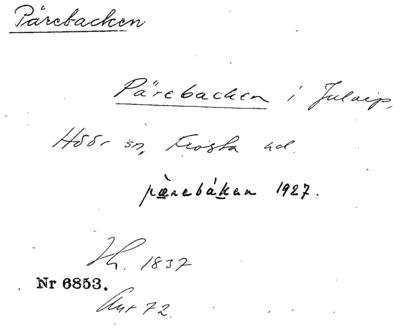 Pärebacken
Pärebacken i Julaip,
Höör sn, Frosta hd.
pærebákan 1927.
1837
Nr 6853.
72.